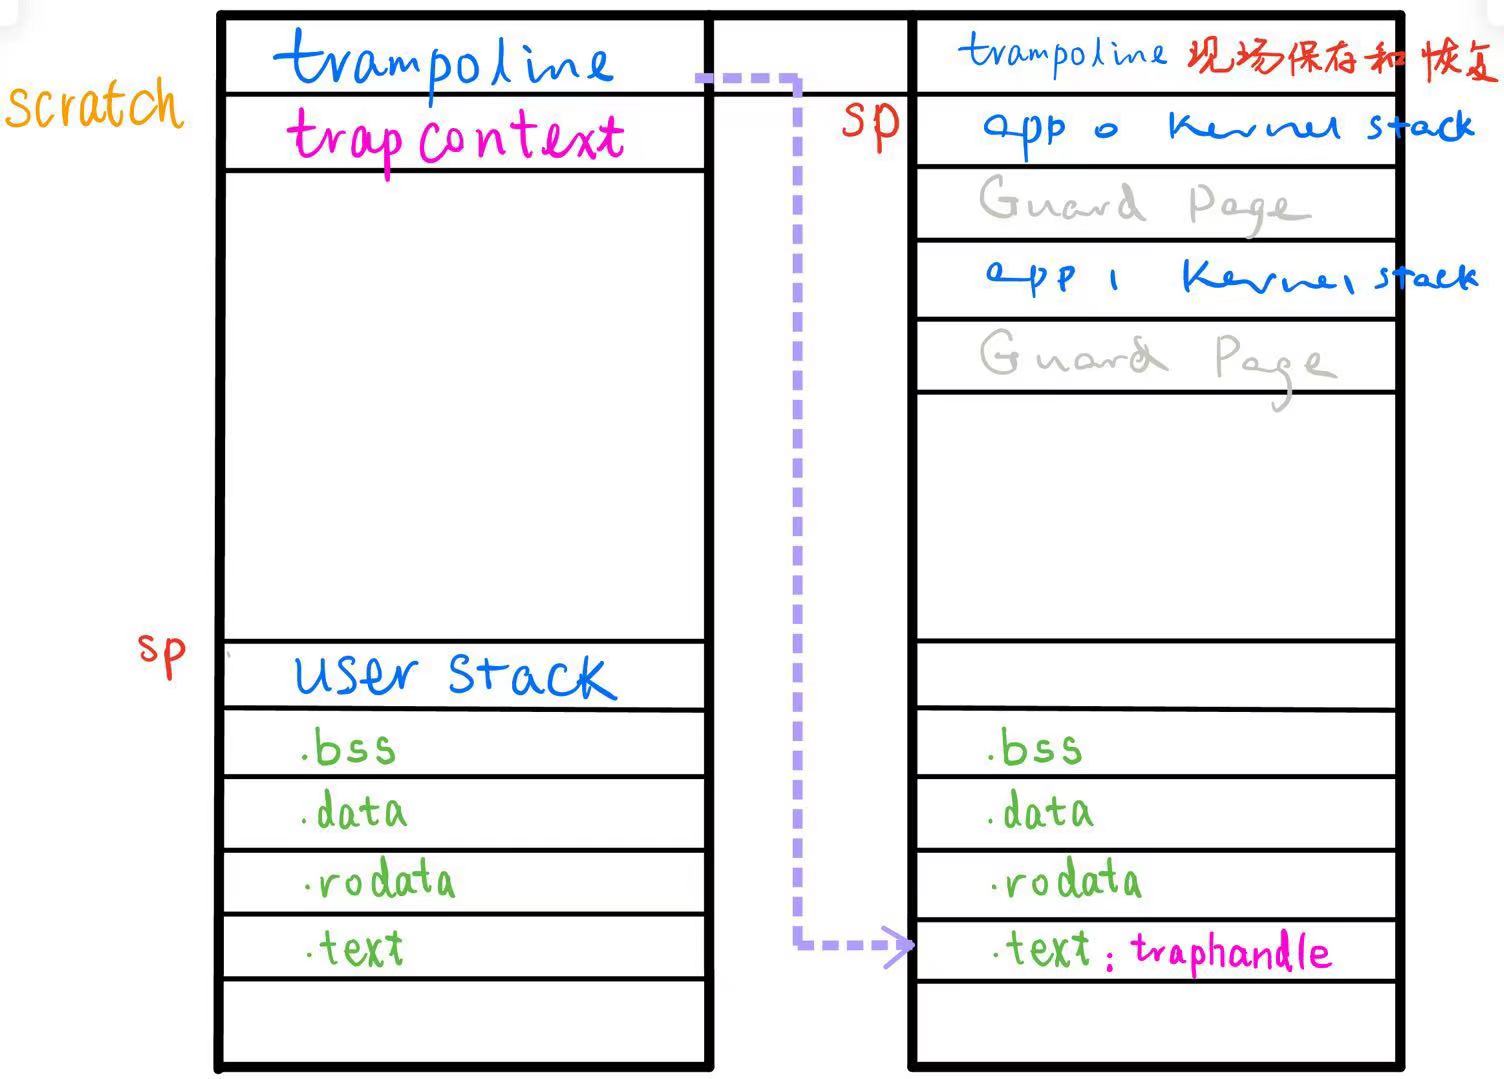 scratch
trampoline
trap context
sp
user stack
.bss
.data
.rodata
.text
trampoline 现场保存和恢复
sp
app 0 Kernel stack
Guard Page
app 1 Kernel stack
Guard Page
.bss
.data
.rodata
.text : traphandle